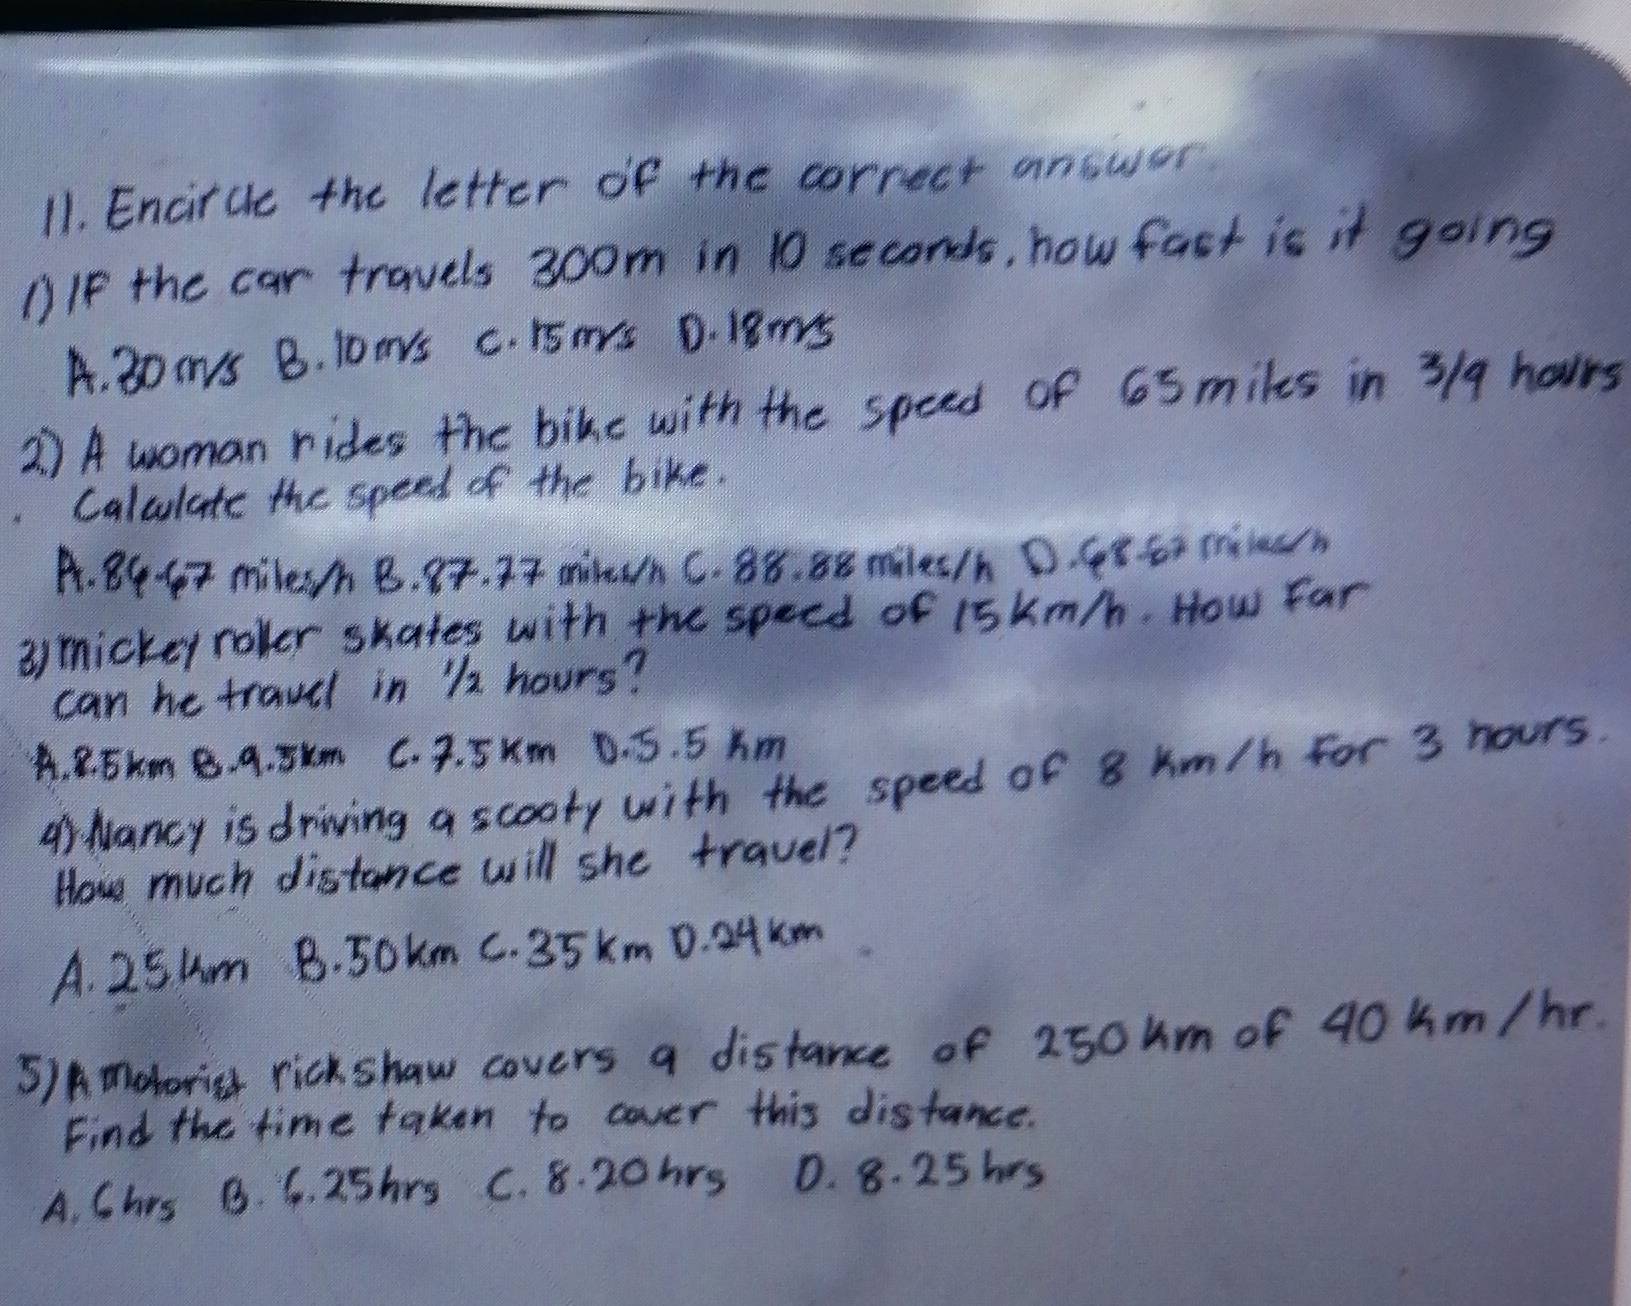 11. Encircle the letter of the correct answer.
1) IF the car travels 300m in 10 seconds, how fast is it going
A. 30 m/s B. 10 m/s C. 15 m/s D. 18 m/s
2) A woman rides the bike with the speed of 65 miles in 3/4 hours
Calculate the speed of the bike.
A. 84.67 miles/h B. 87.77 miles/h C. 88.88 miles/h D. miles/h
3) mickey roller skates with the speed of 15 km/h. How Far
can he travel in 1/2 hours?
A. 8.5 km B. 9.5 km C. 7.5 Km D. 5.5 km
4) Nancy is driving a scooty with the speed of 8 km/h for 3 hours.
How much distance will she travel?
A. 25 km B. 50 km C. 35 km D. 24 km
5) A motorist rickshaw covers a distance of 250 km of 40 km/hr.
Find the time taken to cover this distance.
A. 6 hrs B. 6.25 hrs C. 8.20 hrs D. 8.25 hrs